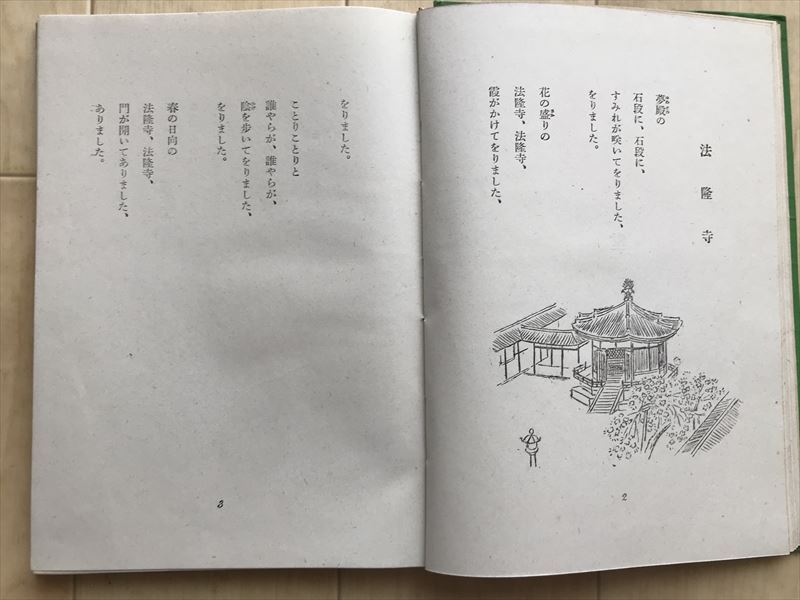 法隆寺
夢殿の
石段に、石段に、
すみれが咲いてをりました、
をりました。
花の盛りの
法隆寺、法隆寺、
霞がかけてをりました、
2
をりました。
ことりことりと
誰やらが、誰やらが、
陰を歩いてをりました、
をりました。
春の日向の
法隆寺、法隆寺、
門が開いてありました、
ありました。
3